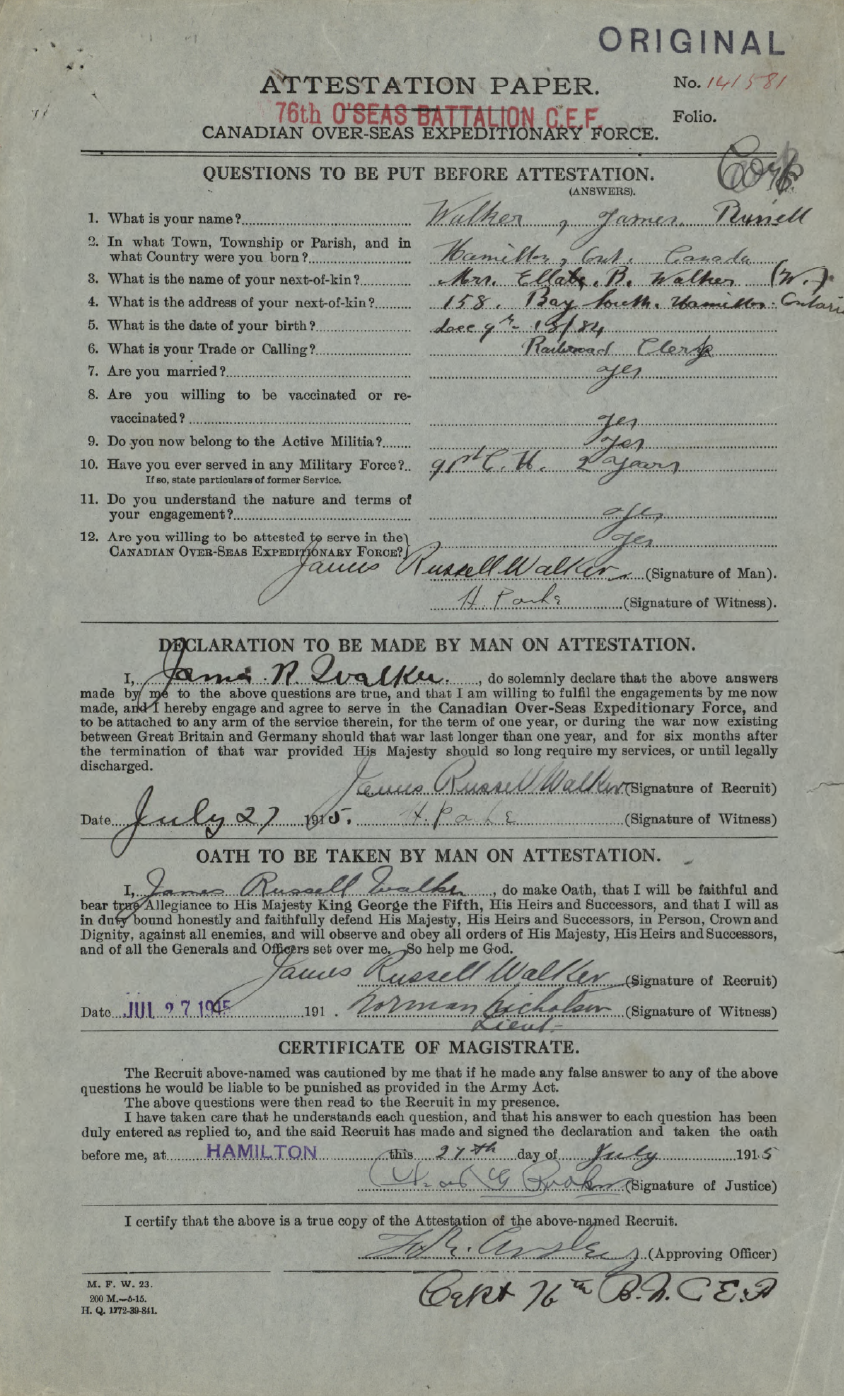 ORIGINAL
ATTESTATION PAPER.
No. 141581
76th O'SEAS BATTALION C.E.F.
Folio.
CANADIAN OVER-SEAS EXPEDITIONARY FORCE.
QUESTIONS TO BE PUT BEFORE ATTESTATION.
(ANSWERS).
1. What is your name? Walker, James Russell
2. In what Town, Township or Parish, and in
what Country were you born? Hamilton, Ont. Canada
3. What is the name of your next-of-kin? Mrs. B. Walker (W.)
4. What is the address of your next-of-kin? 158. Bay South. Hamilton. Ontario
5. What is the date of your birth? Dec 9th 1884
6. What is your Trade or Calling? Railroad Clerk
7. Are you married? yes
8. Are you willing to be vaccinated or re-
vaccinated? yes
9. Do you now belong to the Active Militia? yes
10. Have you ever served in any Military Force? 91st C. H. 2 years
If so, state particulars of former Service.
11. Do you understand the nature and terms of
your engagement? yes
12. Are you willing to be attested to serve in the
CANADIAN OVER-SEAS EXPEDITIONARY FORCE? yes
James Russell Walker (Signature of Man).
H. (Signature of Witness).
DECLARATION TO BE MADE BY MAN ON ATTESTATION.
I, James R. Walker, do solemnly declare that the above answers
made by me to the above questions are true, and that I am willing to fulfil the engagements by me now
made, and I hereby engage and agree to serve in the Canadian Over-Seas Expeditionary Force, and
to be attached to any arm of the service therein, for the term of one year, or during the war now existing
between Great Britain and Germany should that war last longer than one year, and for six months after
the termination of that war provided His Majesty should so long require my services, or until legally
discharged.
James Russell Walker (Signature of Recruit)
Date July 27 1915. H. (Signature of Witness)
OATH TO BE TAKEN BY MAN ON ATTESTATION.
I, James Russell Walker, do make Oath, that I will be faithful and
bear true Allegiance to His Majesty King George the Fifth, His Heirs and Successors, and that I will as
in duty bound honestly and faithfully defend His Majesty, His Heirs and Successors, in Person, Crown and
Dignity, against all enemies, and will observe and obey all orders of His Majesty, His Heirs and Successors,
and of all the Generals and Officers set over me. So help me God.
James Russell Walker (Signature of Recruit)
Date JUL 27 1915 191 . Norman Nicholson (Signature of Witness)
Lieut.
CERTIFICATE OF MAGISTRATE.
The Recruit above-named was cautioned by me that if he made any false answer to any of the above
questions he would be liable to be punished as provided in the Army Act.
The above questions were then read to the Recruit in my presence.
I have taken care that he understands each question, and that his answer to each question has been
duly entered as replied to, and the said Recruit has made and signed the declaration and taken the oath
before me, at HAMILTON this 27th day of July 1915
(Signature of Justice)
I certify that the above is a true copy of the Attestation of the above-named Recruit.
(Approving Officer)
Capt 76th C.E.F
M. F. W. 23.
200 M.—5-15.
H. Q. 1772-39-841.